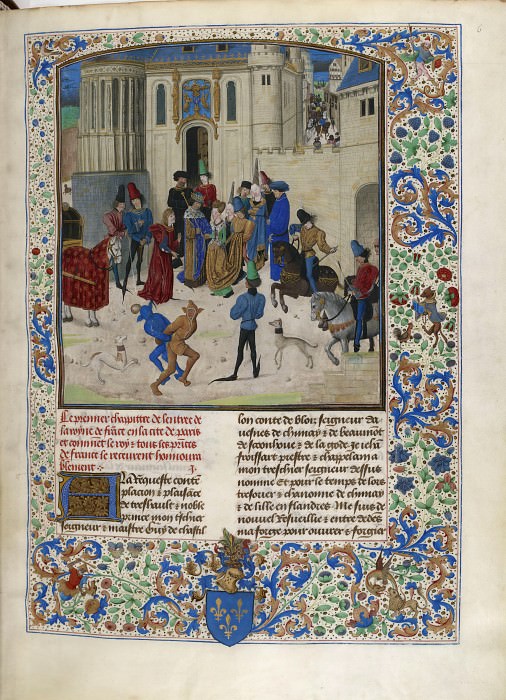 Le premier chapittre de lentree de
la royne de frãce en la cite de paris
et commẽt le roy & tous les prĩces
de france le receurent honnoura
blement
j.
A la requeste contẽ
placion & plaisãce
de treshault & noble
prince mon tschier
seigneur & maistre Guy de chastil
lon conte de blois seigneur da
uesnes de chimay & de beaumõt
de scoonhoue & de la gode je iehã
froissart prestre & chappelain a
mon treschier seigneur dessus
nomme Et pour le temps de lors
tresorier & chanonne de chimay
& de lille en flandres Me suis de
nouuel resueillie & entre dedẽs
ma forge pour ouurer & forgier
6